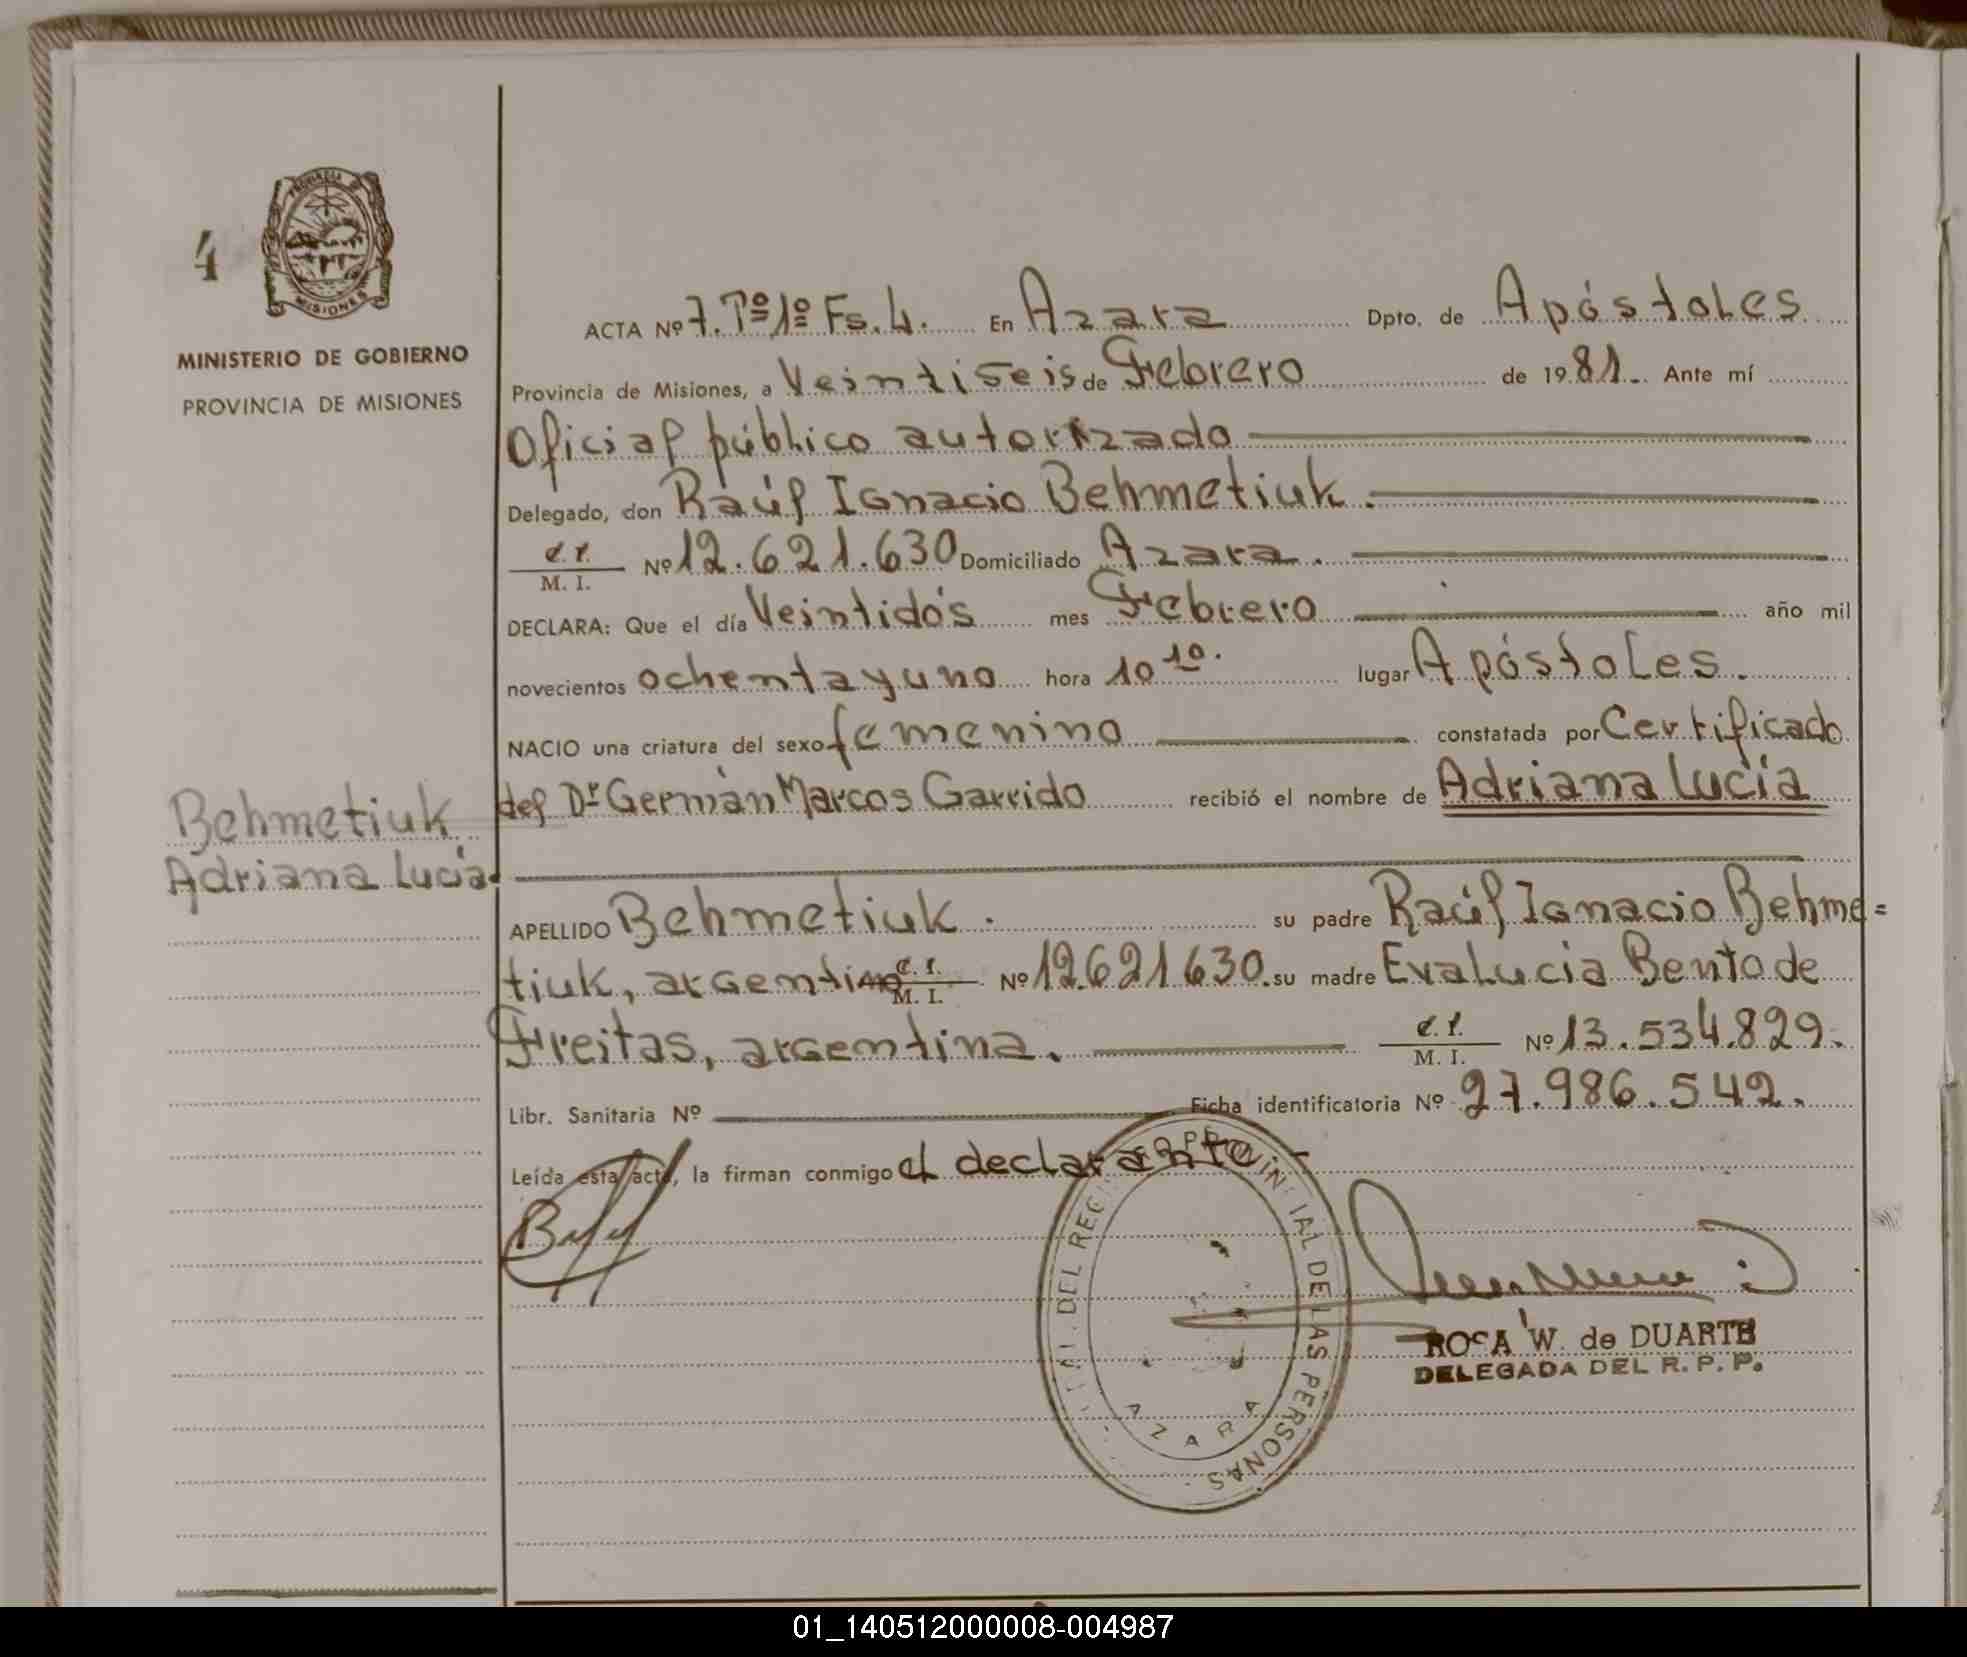 4
PROVINCIA DE
MISIONES
MINISTERIO DE GOBIERNO
PROVINCIA DE MISIONES
Behmetiuk
Adriana Lucía
ACTA Nº 7. Tº 1º Fs. 4. En Azara Dpto. de Apóstoles
Provincia de Misiones, a Veintiseis de Febrero de 1981. Ante mí
Oficial público autorizado
Delegado, don Raúl Ignacio Behmetiuk.
C. I.
M. I. Nº 12.621.630 Domiciliado Azara.
DECLARA: Que el día Veintidós mes Febrero año mil
novecientos ochenta y uno hora 10 10. lugar Apóstoles.
NACIO una criatura del sexo femenino constatada por Certificado
del Dr Germán Marcos Garrido recibió el nombre de Adriana Lucía
APELLIDO Behmetiuk. su padre Raúl Ignacio Behme=
tiuk, argentino C. I. M. I. Nº 12.621.630. su madre Eva Lucia Bento de
Freitas, argentina. C. I. M. I. Nº 13.534.829.
Libr. Sanitaria Nº Ficha identificatoria Nº 27.986.542.
Leída esta acta, la firman conmigo el declarante.-
DEL REG PROVINCIAL DE LAS PERSONAS
AZARA
ROSA W. de DUARTE
DELEGADA DEL R. P. P.
01_140512000008-004987